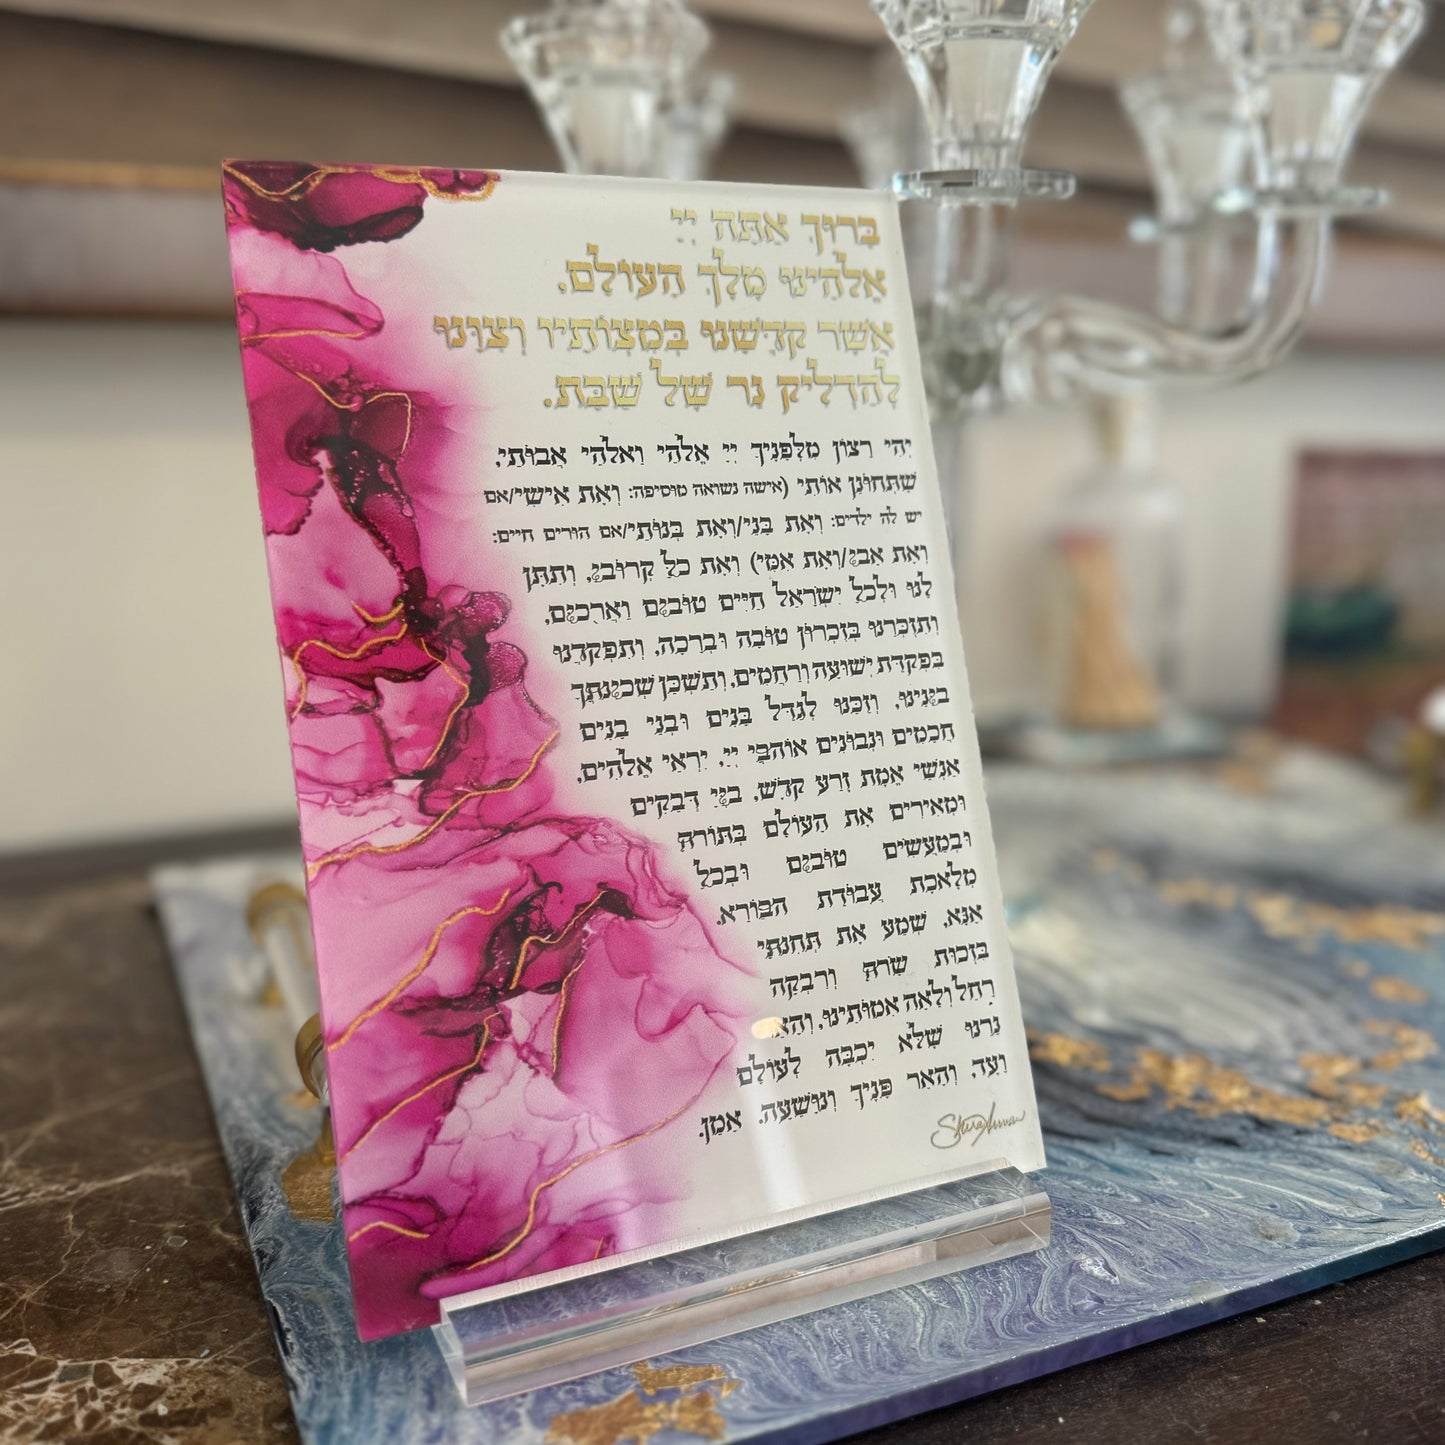 בָּרוּךְ אַתָּה יְיָ
אֱלֹהֵינוּ מֶלֶךְ הָעוֹלָם.
אֲשֶׁר קִדְּשָׁנוּ בְּמִצְוֹתָיו וְצִוָּנוּ
לְהַדְלִיק נֵר שֶׁל שַׁבָּת.
יְהִי רָצוֹן מִלְּפָנֶיךָ יְיָ אֱלֹהַי וֵאלֹהֵי אֲבוֹתַי,
שֶׁתְּחוֹנֵן אוֹתִי (אישה נשואה מוסיפה: וְאֶת אִישִׁי/אם
יש לה ילדים: וְאֶת בָּנַי/וְאֶת בְּנוֹתַי/אם הורים חיים:
וְאֶת אָבִי/וְאֶת אִמִּי) וְאֶת כָּל קְרוֹבַי, וְתִתֵּן
לָנוּ וּלְכָל יִשְׂרָאֵל חַיִּים טוֹבִים וַאֲרֻכִּים,
וְתִזְכְּרֵנוּ בְּזִכְרוֹן טוֹבָה וּבְרָכָה, וְתִפְקְדֵנוּ
בִּפְקֻדַּת יְשׁוּעָה וְרַחֲמִים, וְתַשְׁכֵּן שְׁכִינָתְךָ
בֵּינֵינוּ, וְזַכֵּנוּ לְגַדֵּל בָּנִים וּבְנֵי בָנִים
חֲכָמִים וּנְבוֹנִים אוֹהֲבֵי יְיָ, יִרְאֵי אֱלֹהִים,
אַנְשֵׁי אֱמֶת זֶרַע קֹדֶשׁ, בַּייָ דְּבֵקִים
וּמְאִירִים אֶת הָעוֹלָם בְּתוֹרָה
וּבְמַעֲשִׂים טוֹבִים וּבְכָל
מְלֶאכֶת עֲבוֹדַת הַבּוֹרֵא.
אָנָּא, שְׁמַע אֶת תְּחִנָּתִי
בִּזְכוּת שָׂרָה וְרִבְקָה
רָחֵל וְלֵאָה אִמּוֹתֵינוּ, וְהָאֵר
נֵרֵנוּ שֶׁלֹּא יִכְבֶּה לְעוֹלָם
וָעֶד, וְהָאֵר פָּנֶיךָ וְנִוָּשֵׁעָה. אָמֵן.